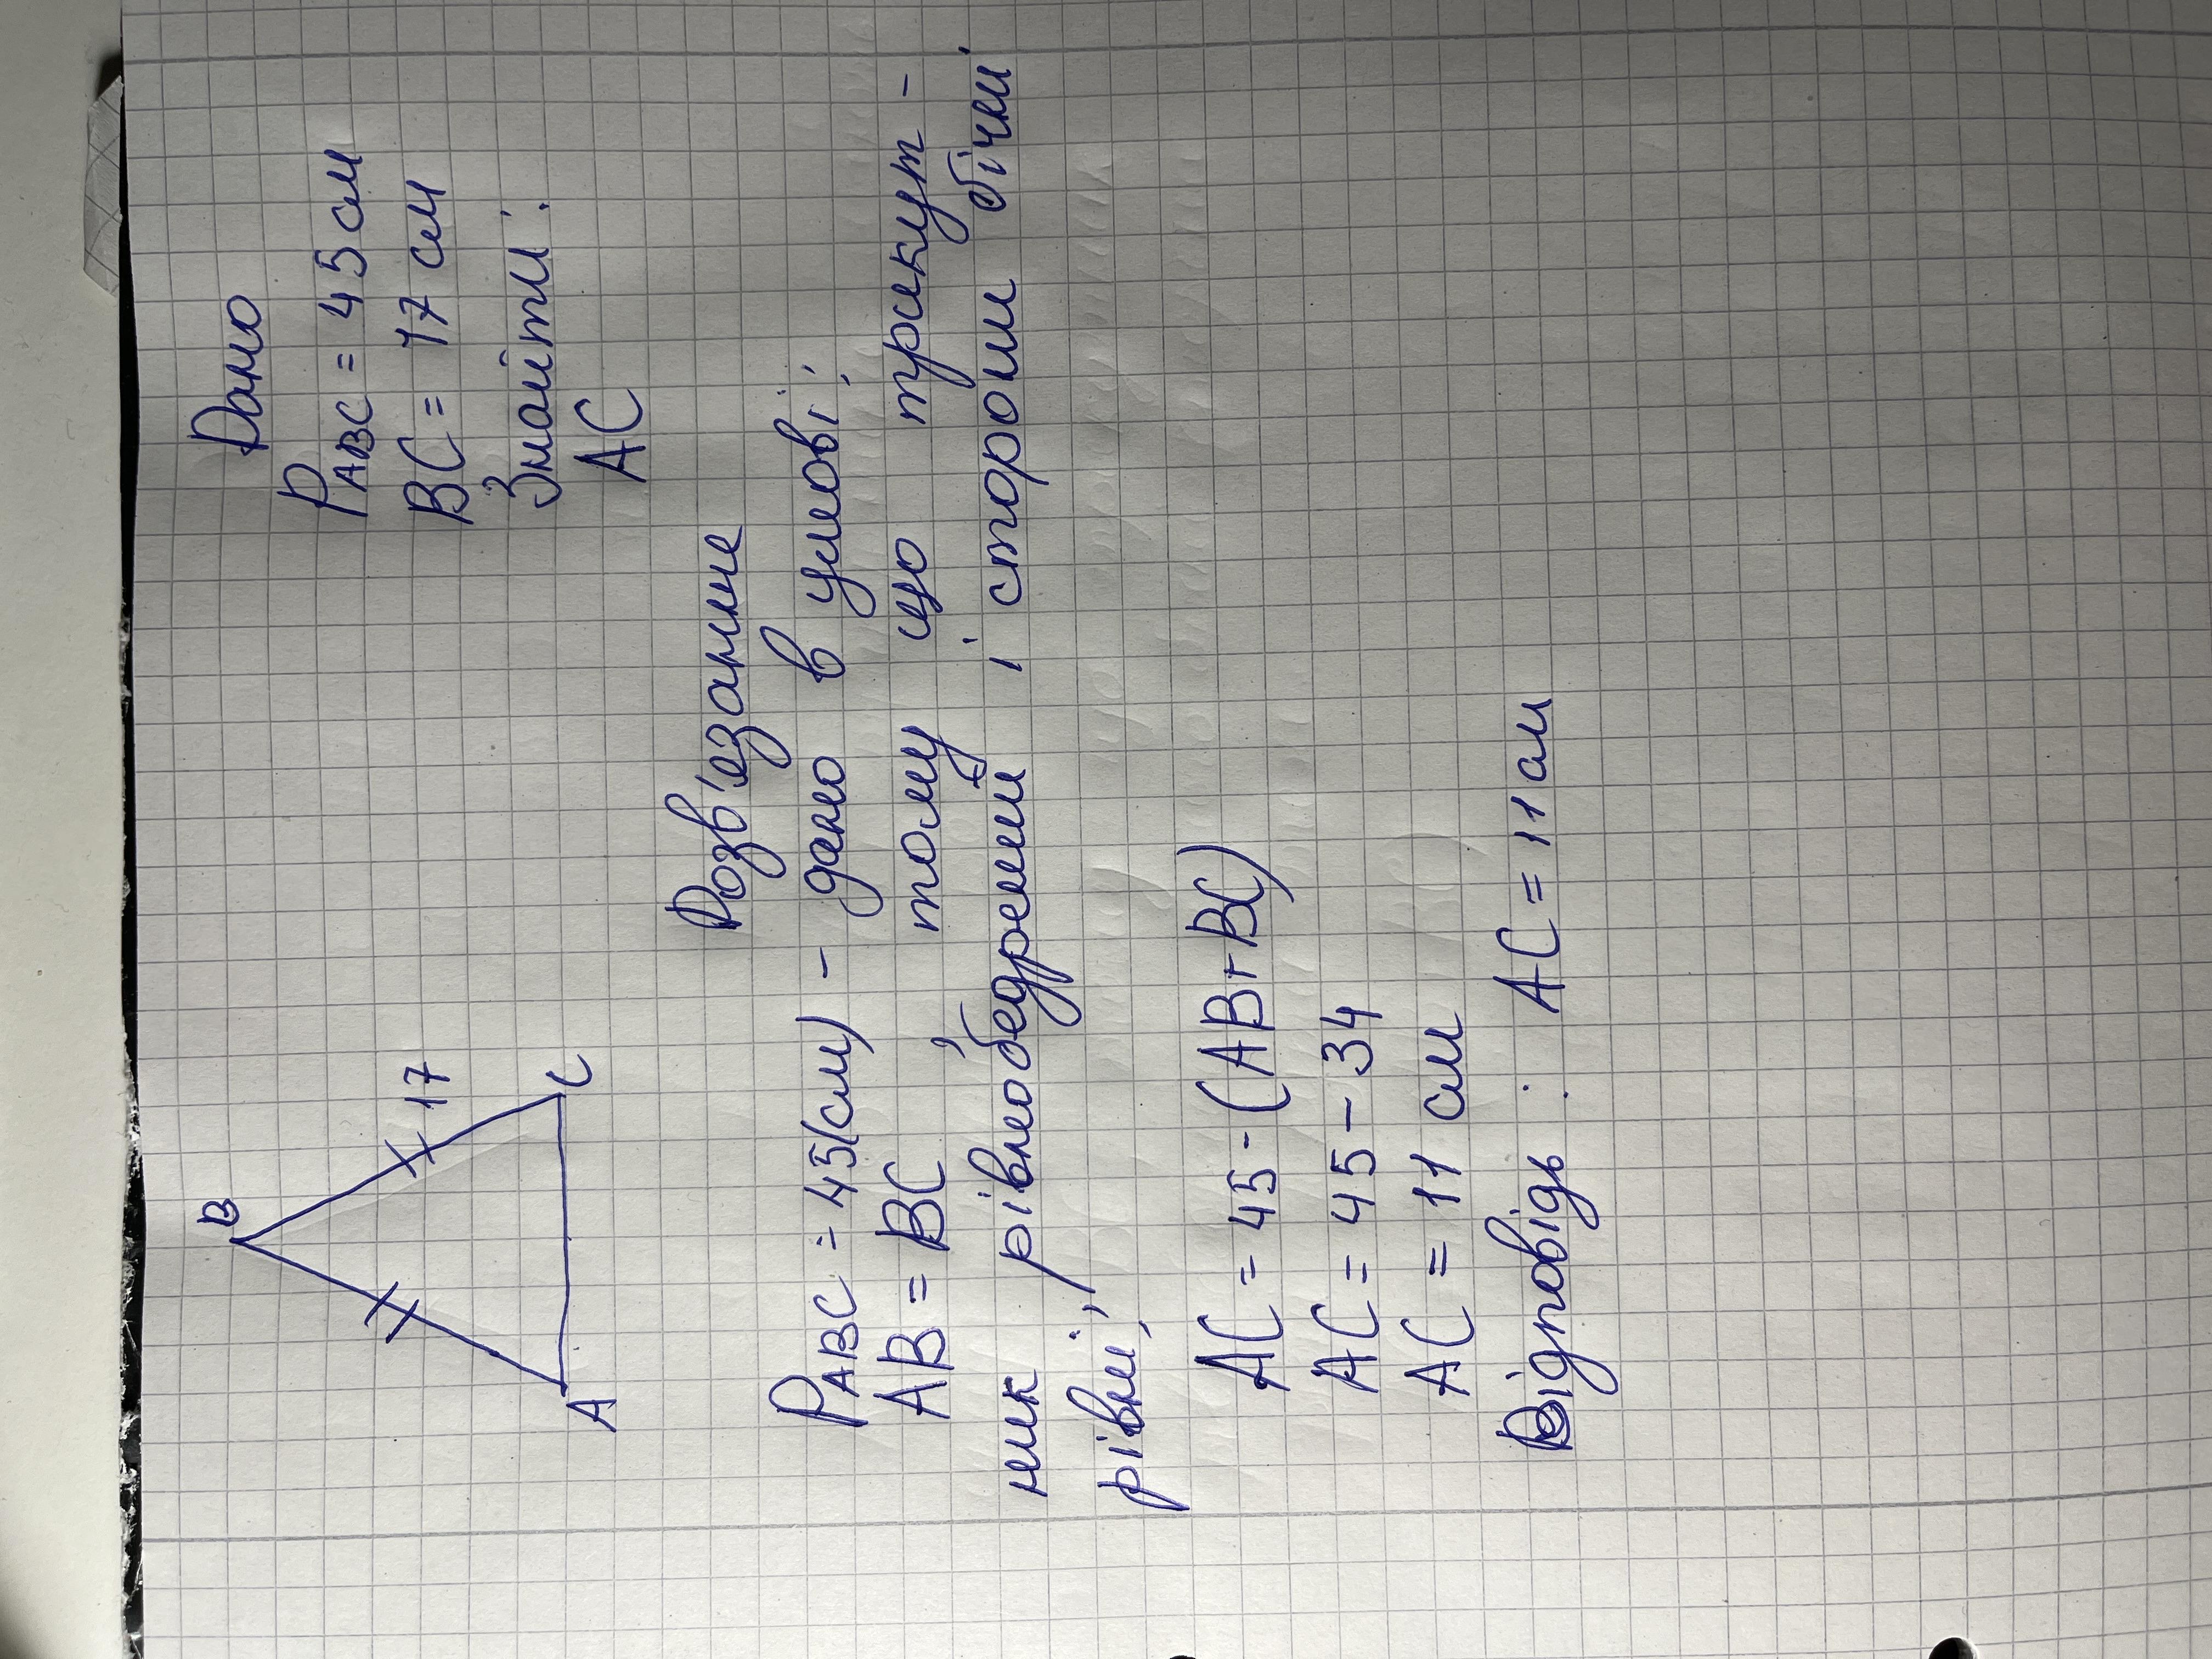 B
17
A
C
Дано
PABC = 45 см
BC = 17 см
Знайти:
AC
Розв'езанне
PABC = 45(см) - дано в умові;
AB = BC, тому що трикут-
ник рівнобедрений і сторони бічні
рівні;
AC = 45-(AB+BC)
AC = 45-34
AC = 11 см
Відповідь: AC = 11 см